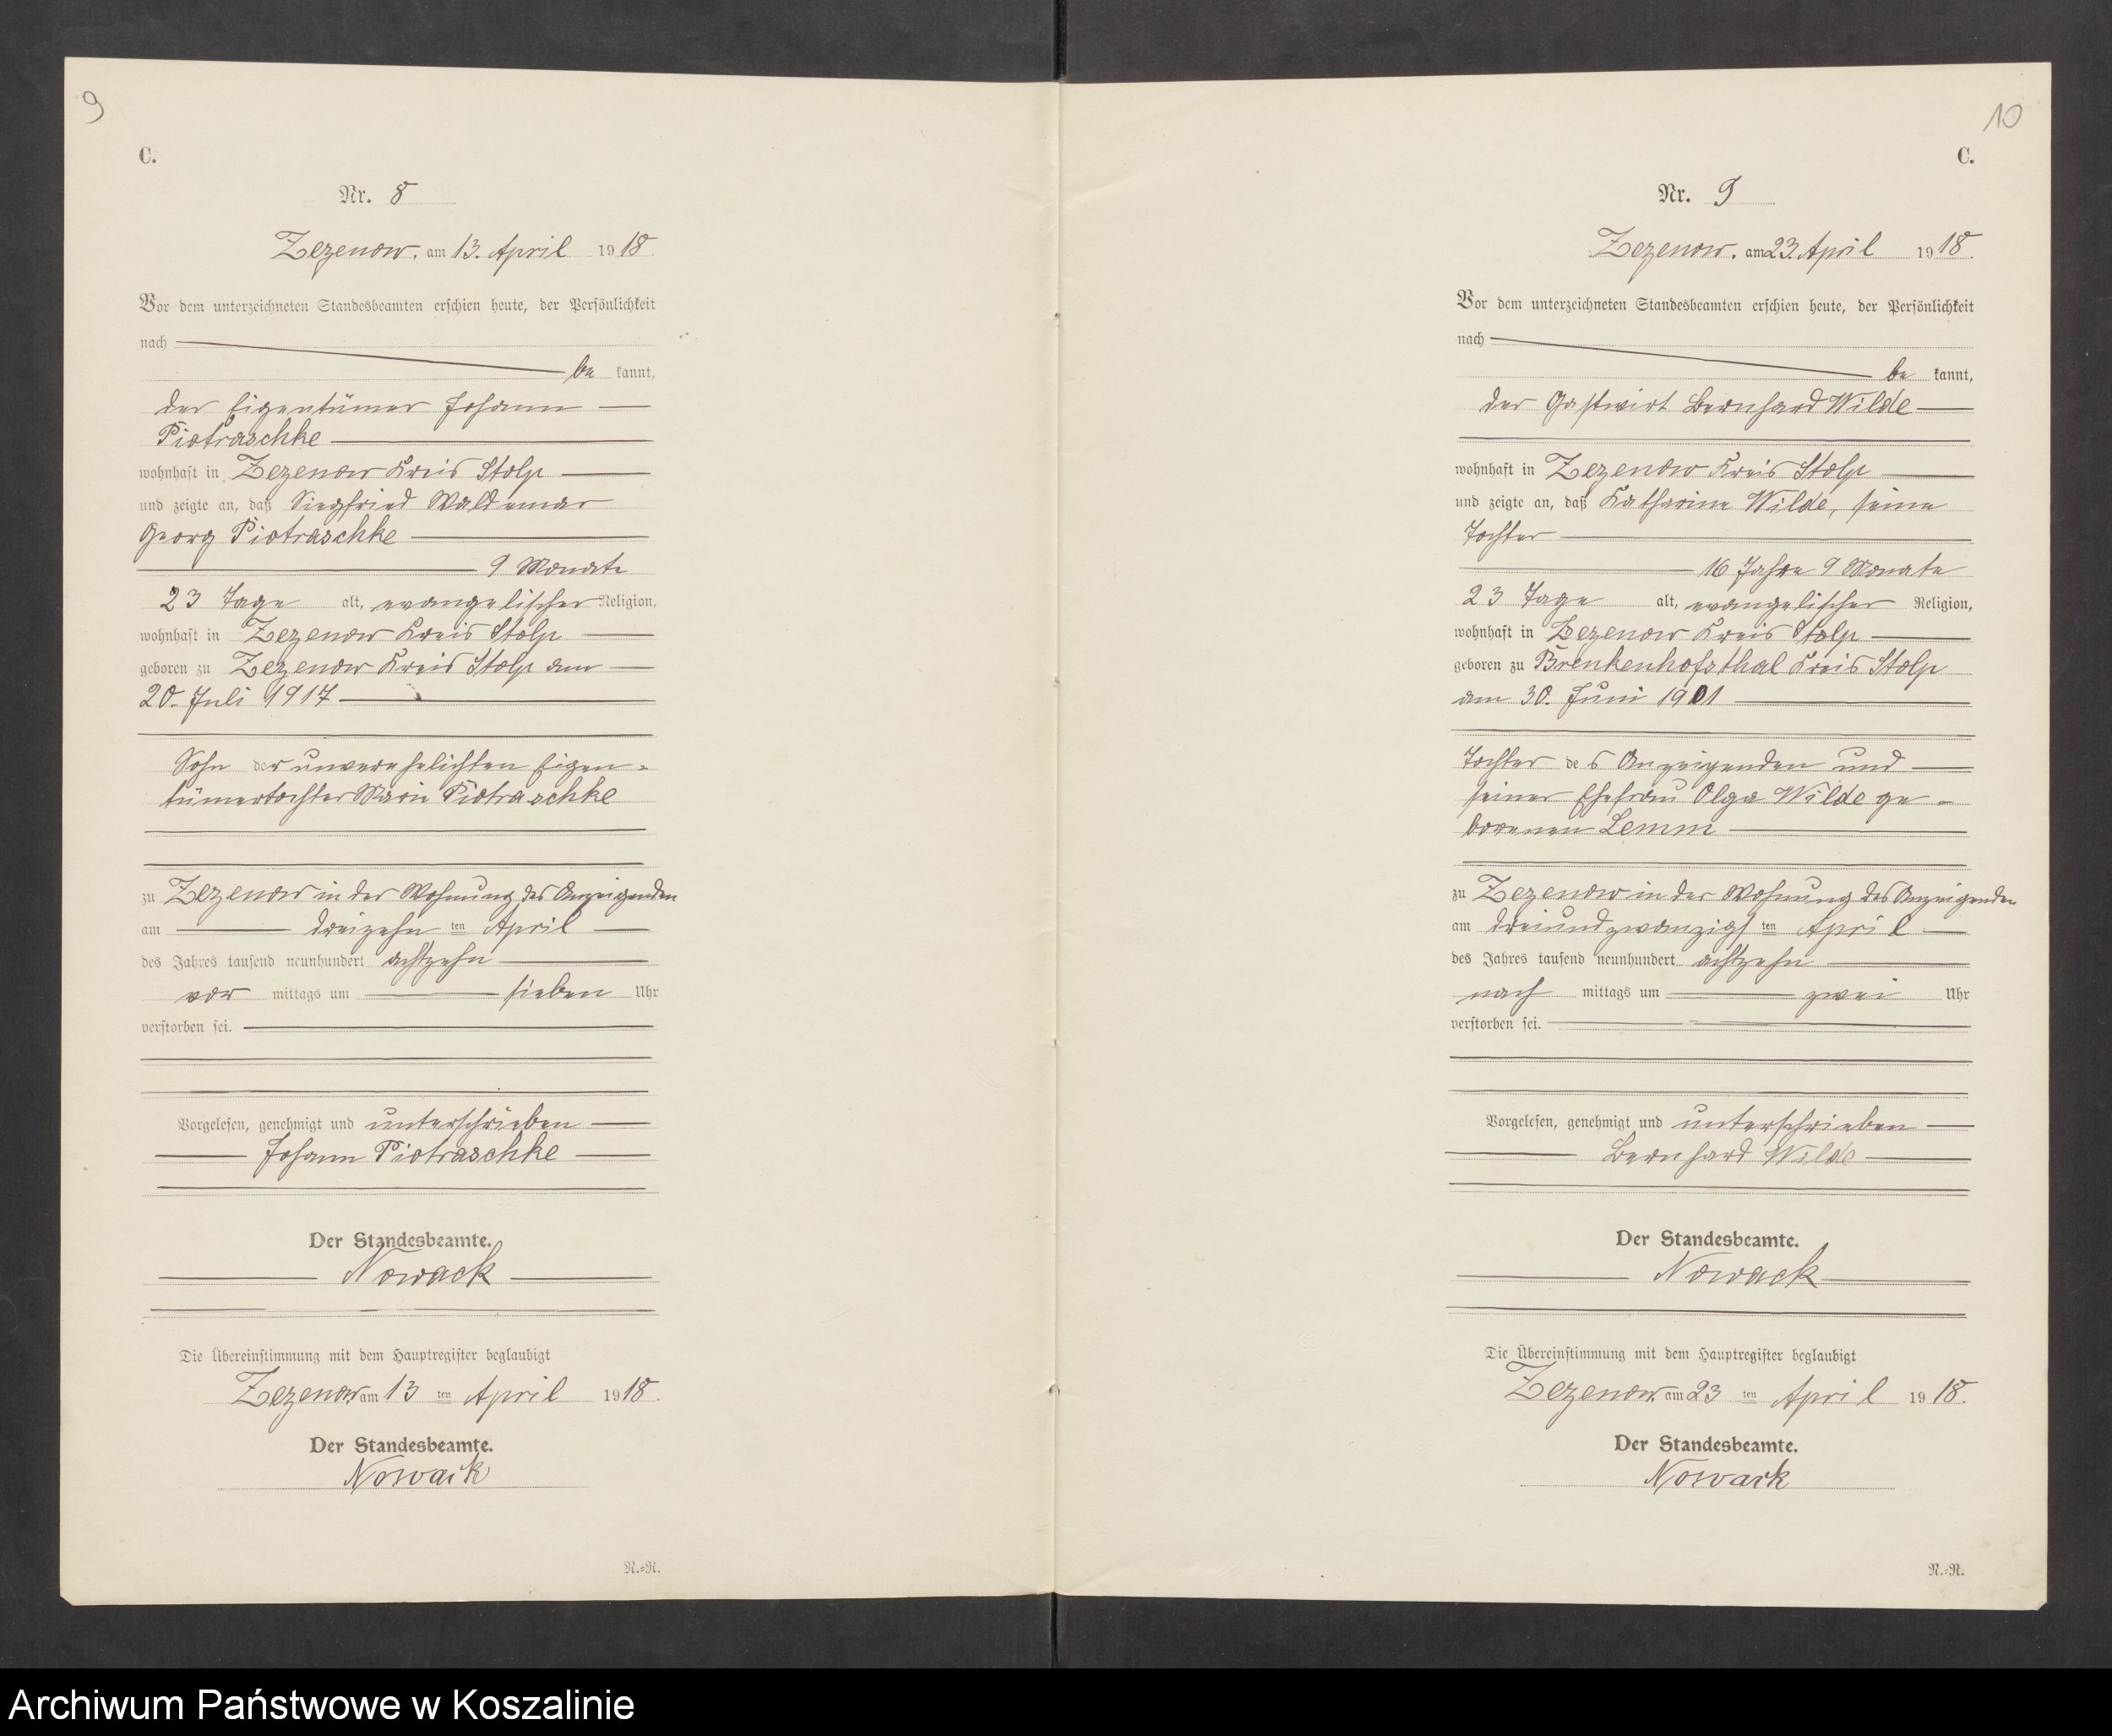 9
C.
Nr. 8
Zezenow, am 13. April 1918.
Vor dem unterzeichneten Standesbeamten erschien heute, der Persönlichkeit
nach
be kannt,
der Eigentümer Johann
Piotraschke
wohnhaft in Zezenow Kreis Stolp
und zeigte an, daß Siegfried Waldemar
Georg Piotraschke
9 Monate
23 Tage alt, evangelischer Religion,
wohnhaft in Zezenow Kreis Stolp
geboren zu Zezenow Kreis Stolp am
20. Juli 1917
Sohn der unverehelichten Eigen-
tümertochter Marie Piotraschke
zu Zezenow in der Wohnung des Anzeigenden
am dreizehn ten April
des Jahres tausend neunhundert achtzehn
vor mittags um sieben Uhr
verstorben sei.
Vorgelesen, genehmigt und unterschrieben
Johann Piotraschke
Der Standesbeamte.
Nowack
Die Übereinstimmung mit dem Hauptregister beglaubigt
Zezenow, am 13 ten April 1918.
Der Standesbeamte.
Nowack
N.=R.
10
C.
Nr. 9
Zezenow, am 23. April 1918.
Vor dem unterzeichneten Standesbeamten erschien heute, der Persönlichkeit
nach
be kannt,
der Gastwirt Bernhard Wilde
wohnhaft in Zezenow Kreis Stolp
und zeigte an, daß Katharine Wilde, seine
Tochter
16 Jahre 9 Monate
23 Tage alt, evangelischer Religion,
wohnhaft in Zezenow Kreis Stolp
geboren zu Brenkenhofsthal Kreis Stolp
am 30. Juni 1901
Tochter des Anzeigenden und
seiner Ehefrau Olga Wilde ge-
borenen Lemm
zu Zezenow in der Wohnung des Anzeigenden
am dreiundzwanzigs ten April
des Jahres tausend neunhundert achtzehn
nach mittags um zwei Uhr
verstorben sei.
Vorgelesen, genehmigt und unterschrieben
Bernhard Wilde
Der Standesbeamte.
Nowack
Die Übereinstimmung mit dem Hauptregister beglaubigt
Zezenow, am 23 ten April 1918.
Der Standesbeamte.
Nowack
N.=R.
Archiwum Państwowe w Koszalinie